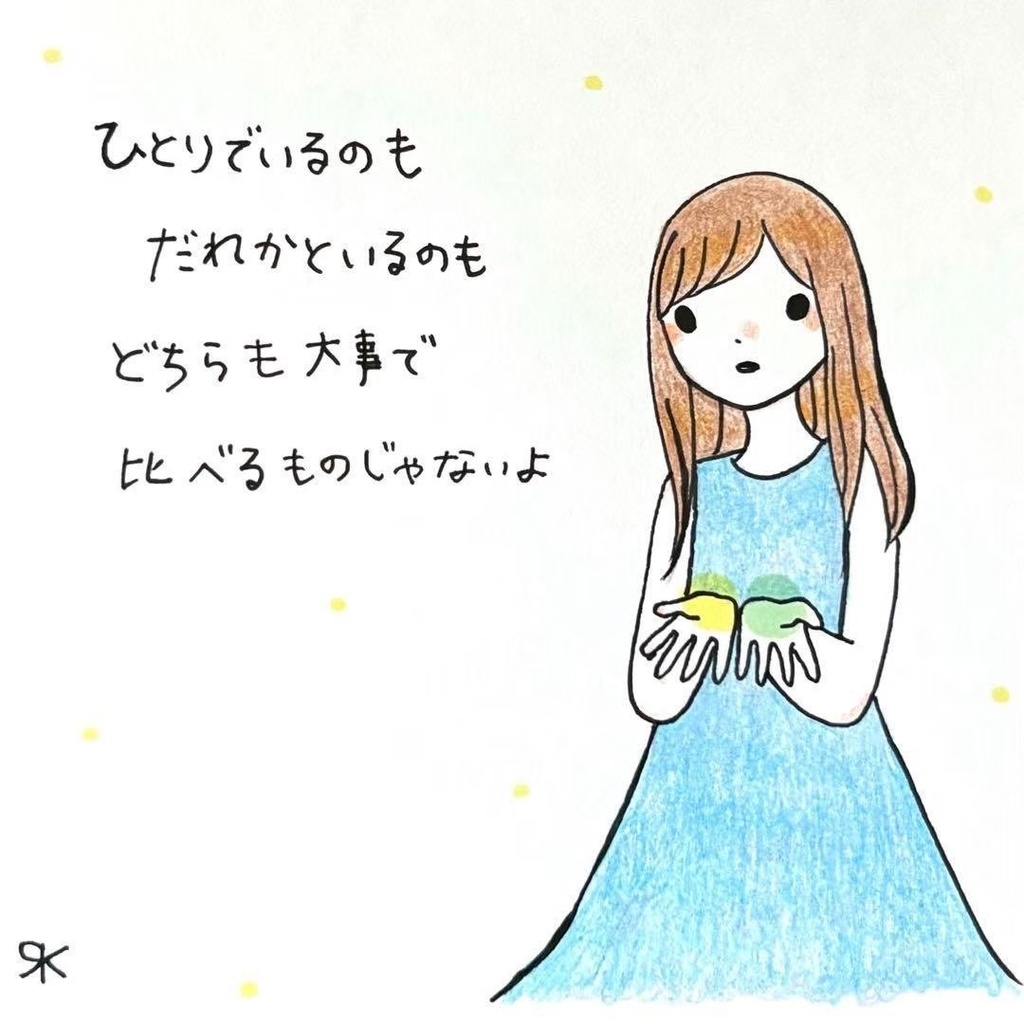 ひとりでいるのも
だれかといるのも
どちらも大事で
比べるものじゃないよ